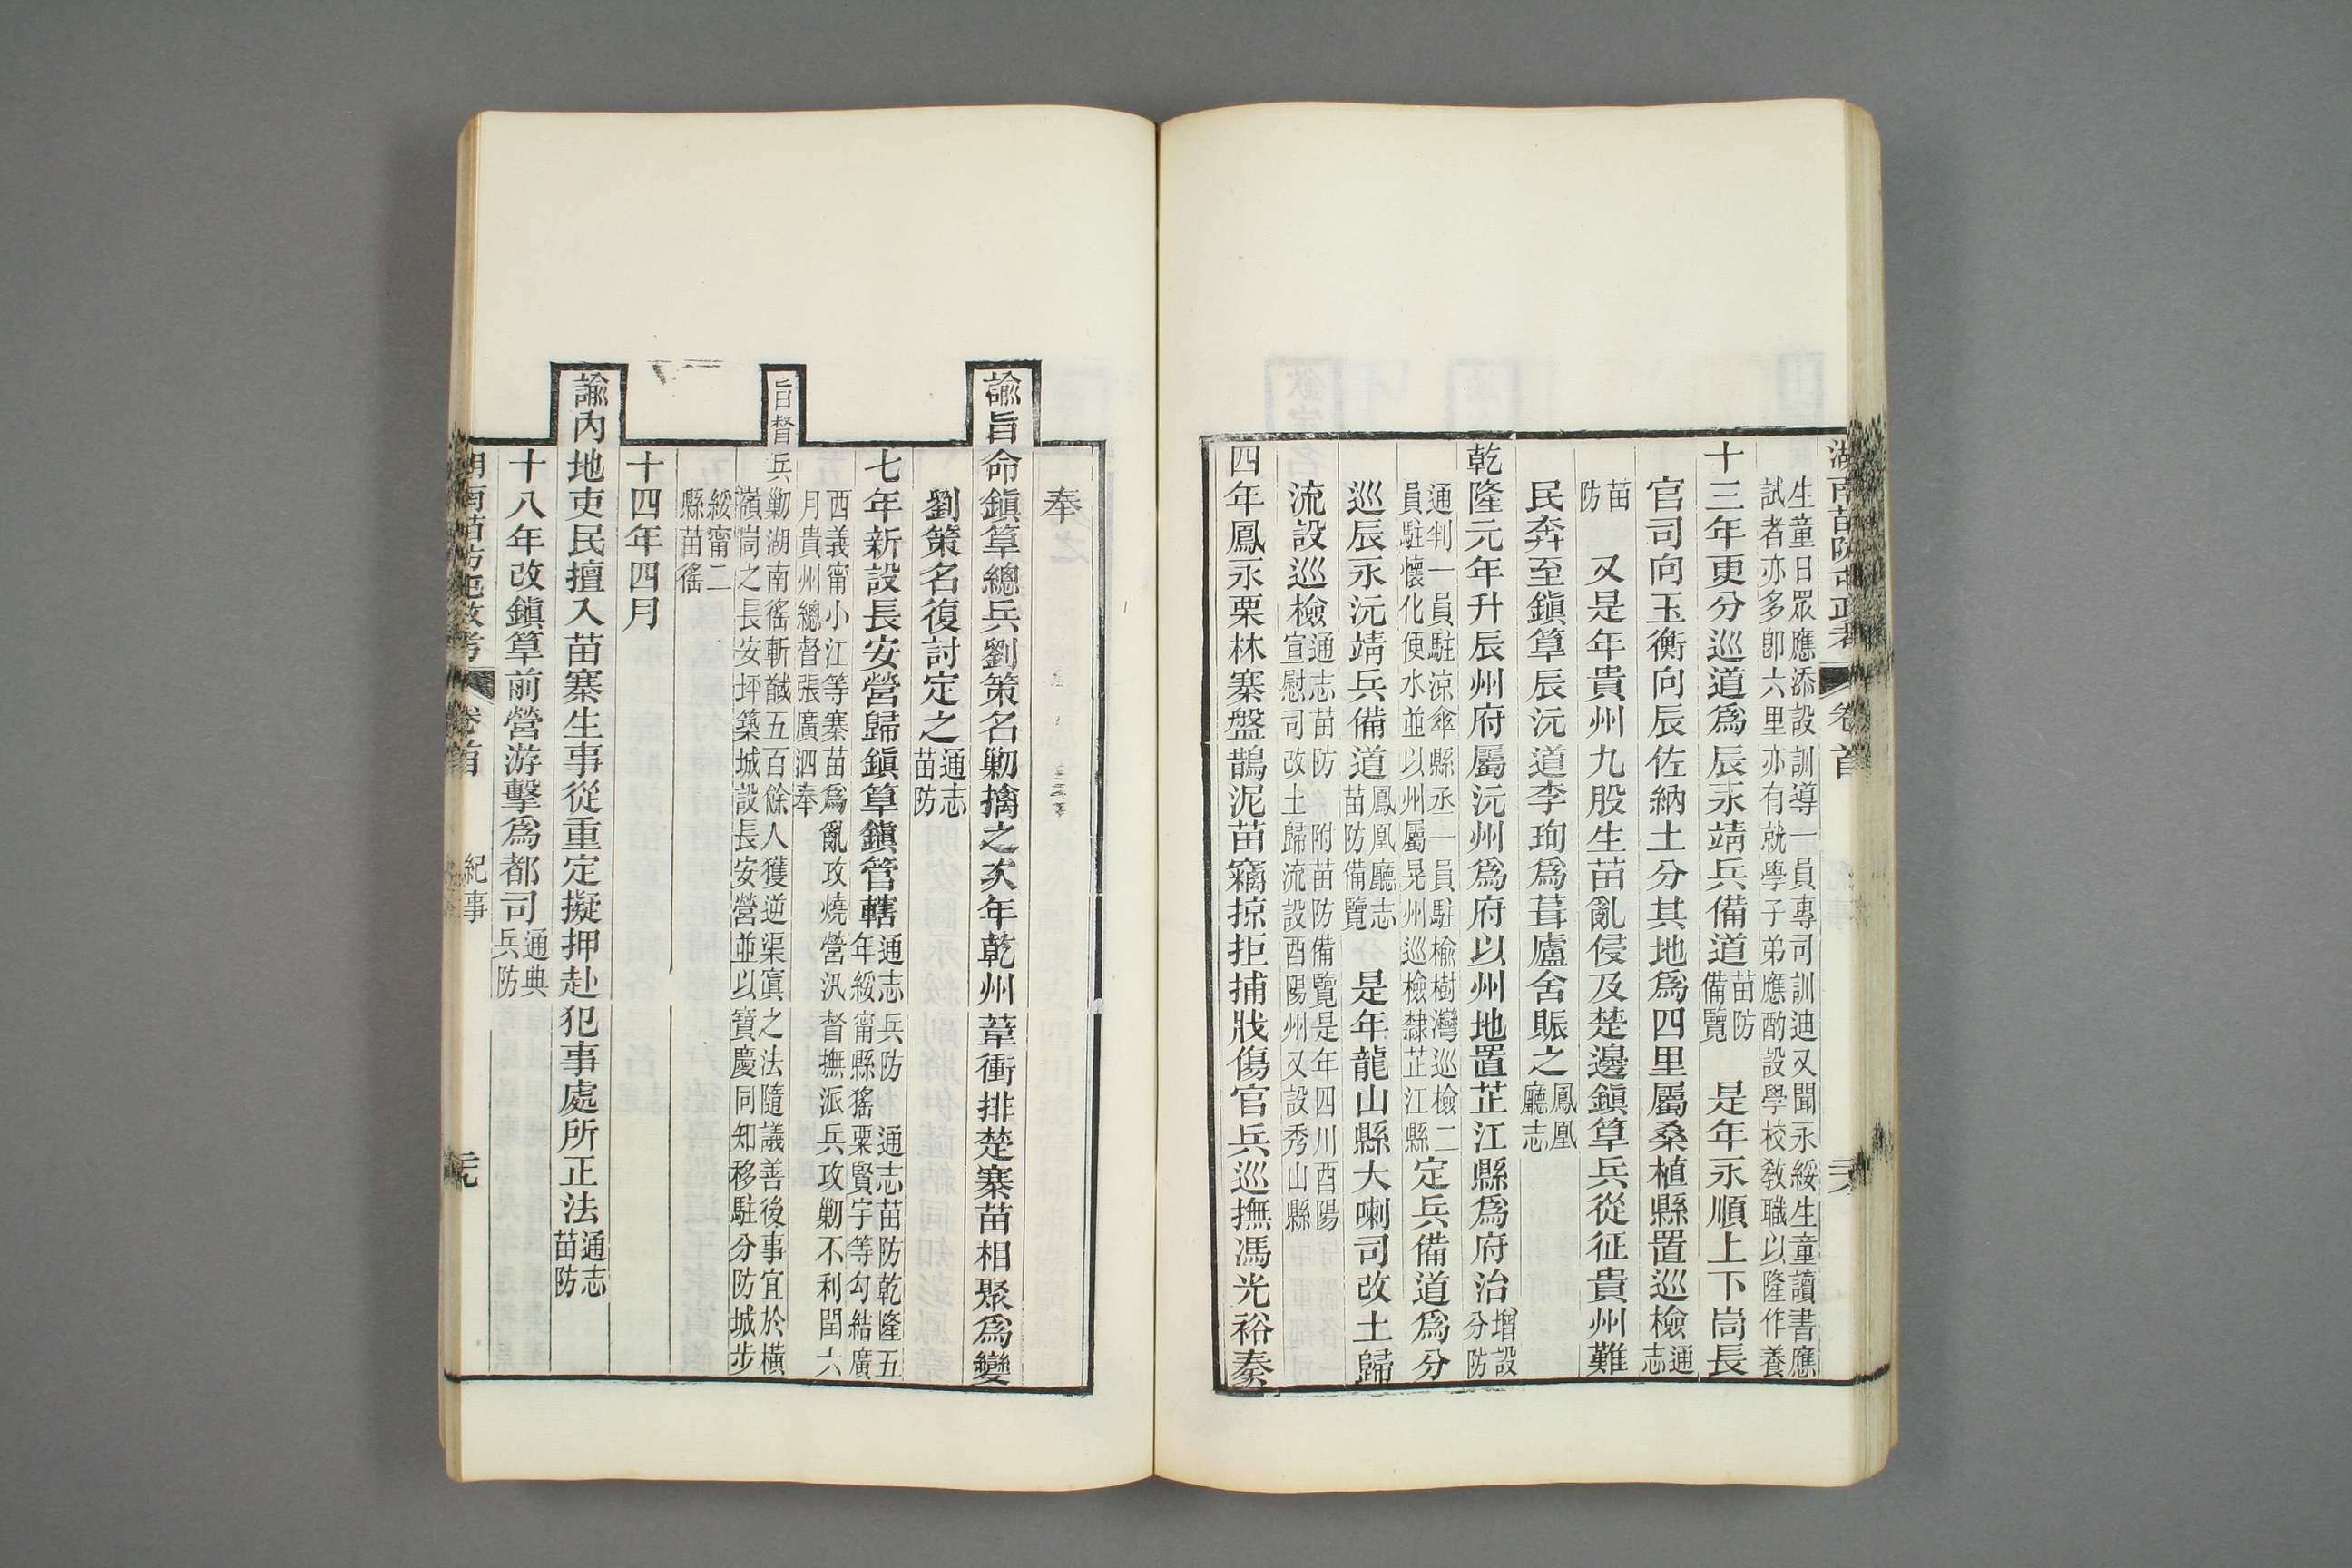 生童日眾應添設訓導一員專司訓迪又聞永綏生童讀書應
試者亦多卽六里亦有就學子弟應酌設學校敎職以隆作養
十三年更分巡道爲辰永靖兵備道苗防備覽　是年永順上下峝長
官司向玉衡向辰佐納土分其地爲四里屬桑植縣置巡檢通志
苗防　又是年貴州九股生苗亂侵及楚邊鎭筸兵從征貴州難
民奔至鎭筸辰沅道李珣爲葺廬舍賑之鳳凰廳志
乾隆元年升辰州府屬沅州爲府以州地置芷江縣爲府治增設分防
通判一員駐涼傘縣丞一員駐榆樹灣巡檢二員駐懷化便水並以州屬晃州巡檢隸芷江縣定兵備道爲分
巡辰永沅靖兵備道鳳凰廳志苗防備覽　是年龍山縣大喇司改土歸
流設巡檢通志苗防　附苗防備覽是年四川酉陽宣慰司改土歸流設酉陽州又設秀山縣
四年鳳永栗林寨盤鵲泥苗竊掠拒捕戕傷官兵巡撫馮光裕奏
湖南苗防屯政考　卷首
奉
諭旨命鎭筸總兵劉策名勦擒之次年乾州葦衝排楚寨苗相聚爲變
劉策名復討定之通志苗防
七年新設長安營歸鎭筸鎭管轄通志兵防　通志苗防乾隆五年綏甯縣猺粟賢宇等勾結廣
西義甯小江等寨苗爲亂攻燒營汛督撫派兵攻勦不利閏六
月貴州總督張廣泗奉
旨督兵勦湖南徭斬馘五百餘人獲逆渠寘之法隨議善後事宜於橫
嶺峝之長安坪築城設長安營並以寶慶同知移駐分防城步
綏甯二縣苗徭
十四年四月
諭內地吏民擅入苗寨生事從重定擬押赴犯事處所正法通志苗防
十八年改鎭筸前營游擊爲都司通典兵防
湖南苗防屯政考　卷首　紀事　元